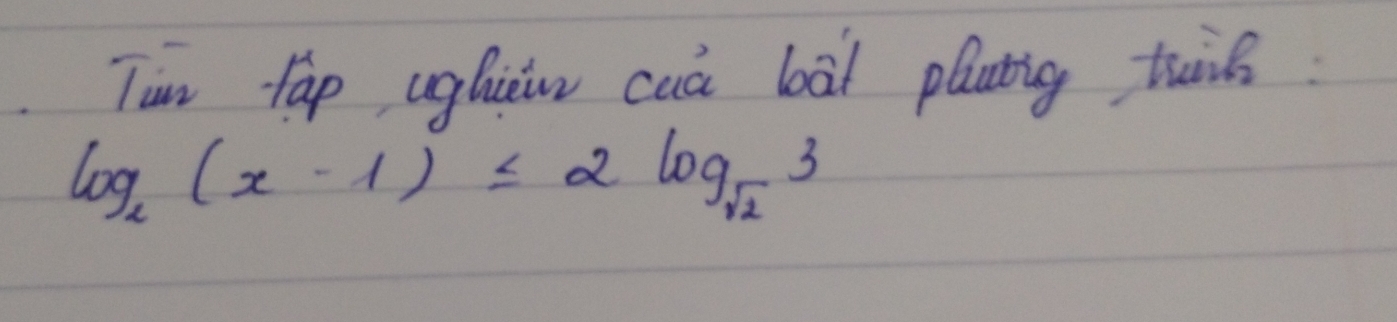 . Tìm tập nghiệm của bất phương trình :
log₂ (x - 1) ≤ 2 log_√2 3